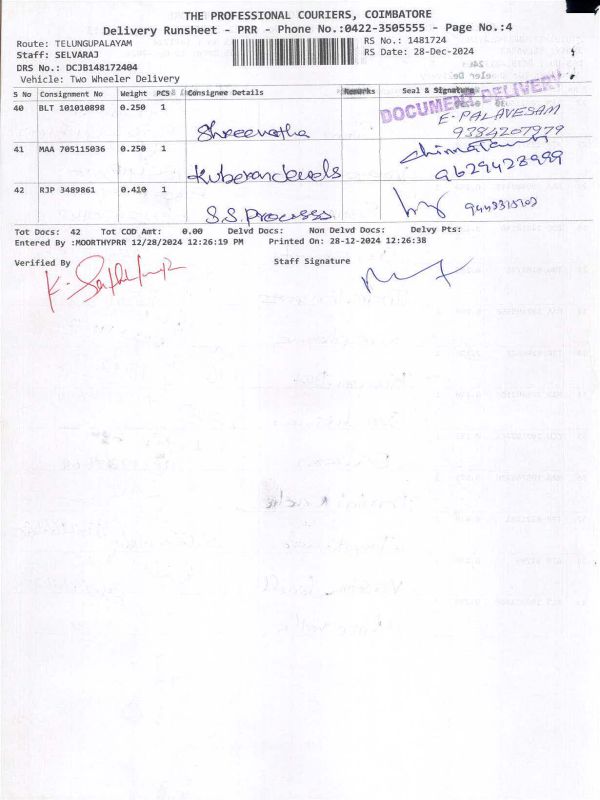 THE PROFESSIONAL COURIERS, COIMBATORE
Delivery Runsheet - PRR - Phone No.:0422-3505555 - Page No.:4
Route: TELUNGUPALAYAM RS No.: 1481724
Staff: SELVARAJ RS Date: 28-Dec-2024
DRS No.: DCJB148172404
Vehicle: Two Wheeler Delivery
S No Consignment No Weight PCS Consignee Details Remarks Seal & Signature
DOCUMENT DELIVERY
40 BLT 101010898 0.250 1 E-PALAVESAM
9384207979
41 MAA 705115036 0.250 1
9629428999
42 RJP 3489861 0.410 1
S.S. Process
Tot Docs: 42 Tot COD Amt: 0.00 Delvd Docs: Non Delvd Docs: Delvy Pts:
Entered By :MOORTHYPRR 12/28/2024 12:26:19 PM Printed On: 28-12-2024 12:26:38
Verified By Staff Signature